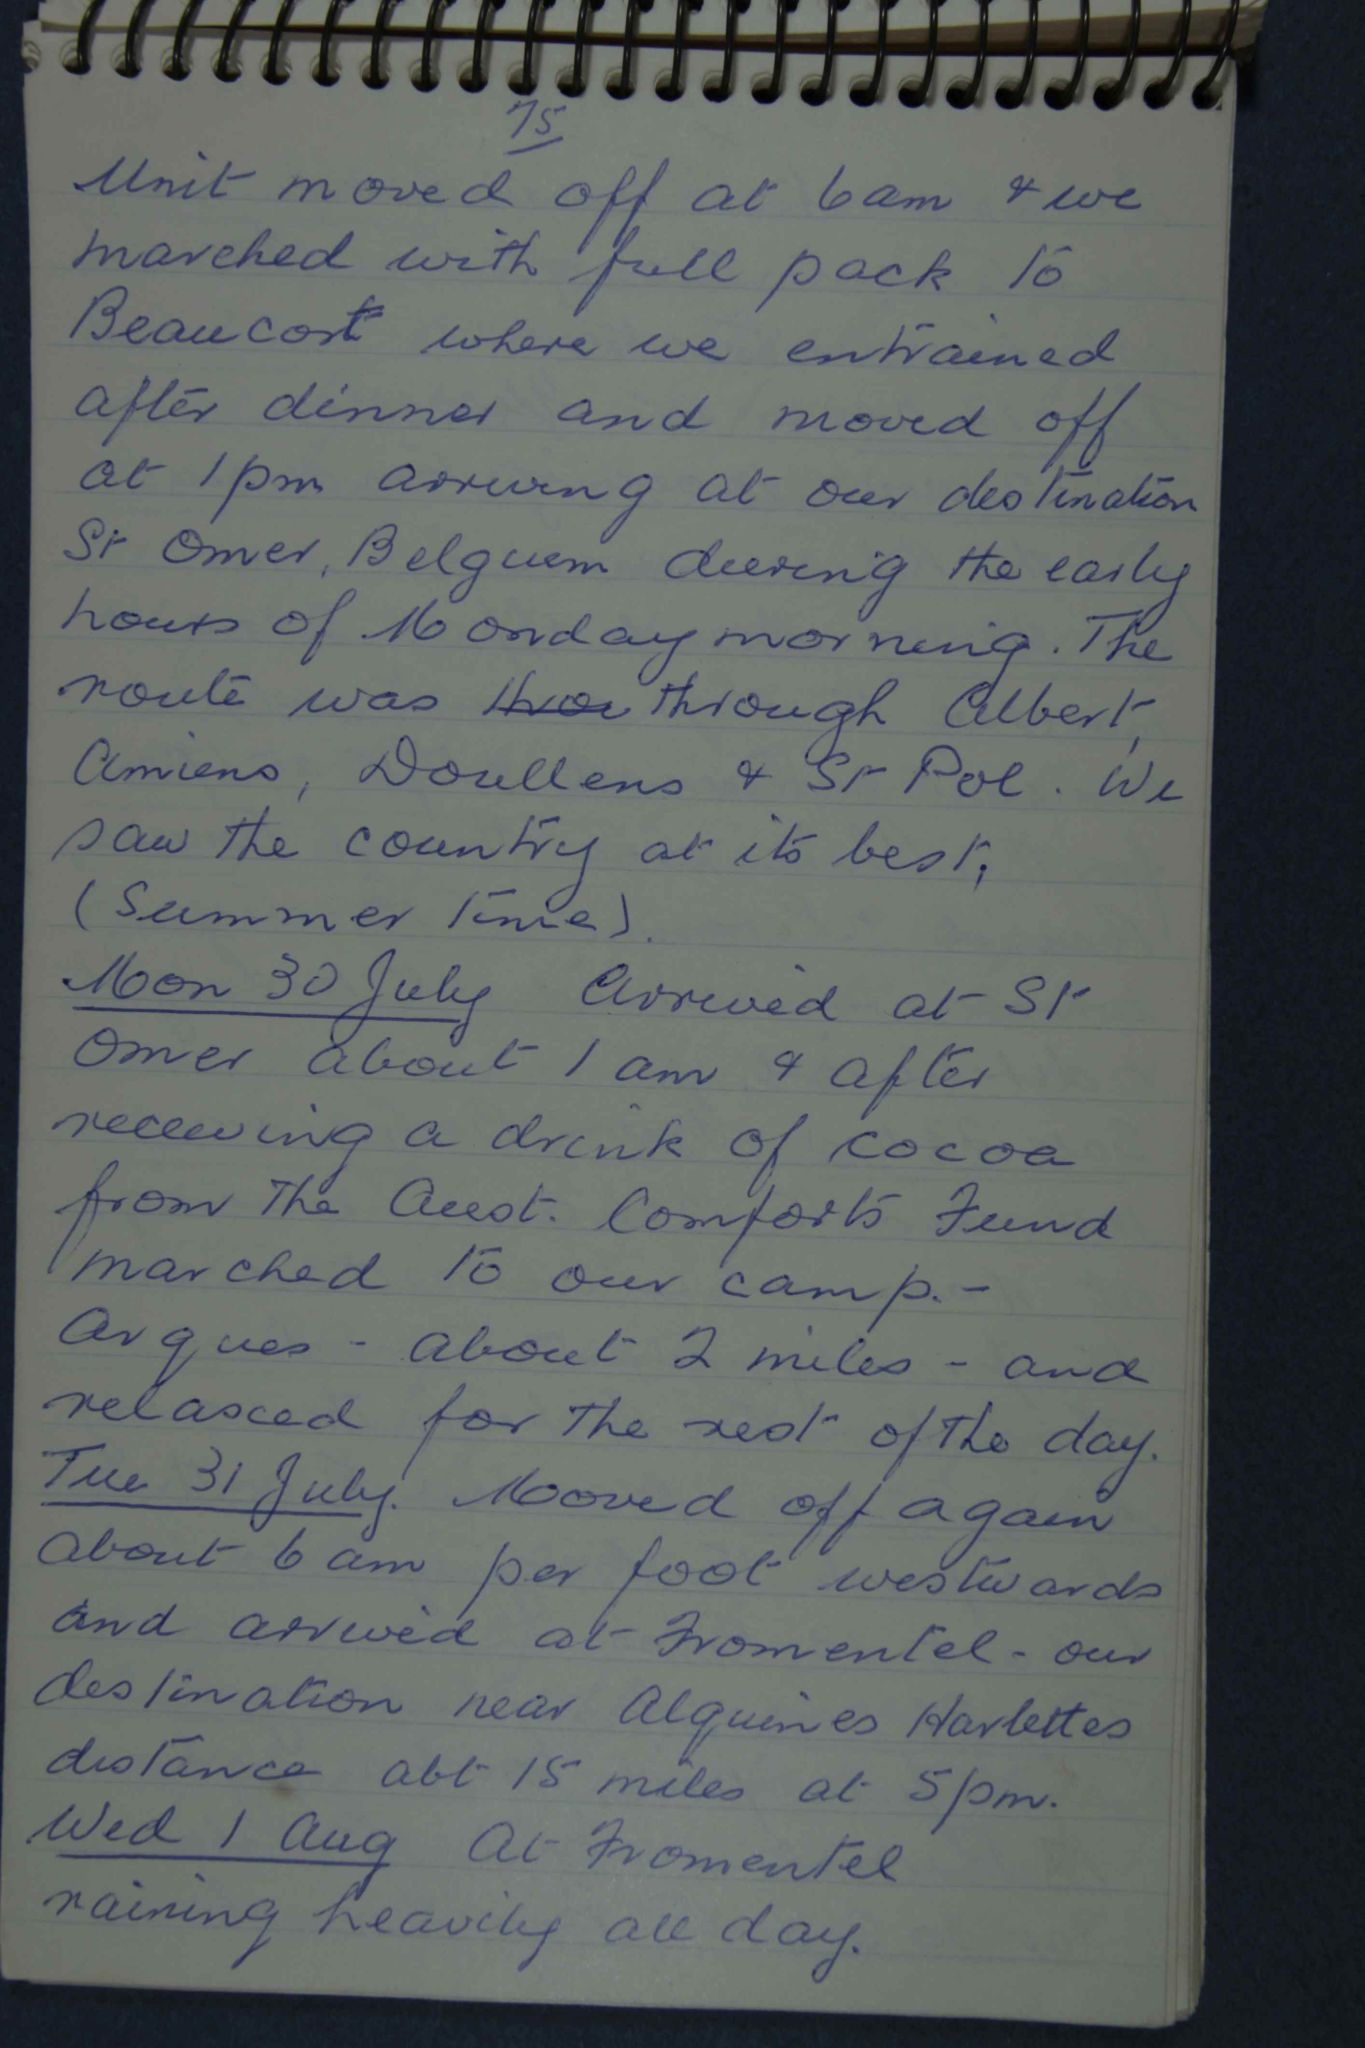 75
Unit moved off at 6am & we
marched with full pack to
Beaucort where we entrained
after dinner and moved off
at 1pm arriving at our destination
St Omer, Belguem during the early
hours of Monday morning. The
route was throu through Albert,
Amiens, Doullens & St Pol. We
saw the country at its best,
(Summer time).
Mon 30 July Arrived at St
Omer about 1 am & after
receiving a drink of cocoa
from the Aust. Comforts Fund
marched to our camp. -
Arques - about 2 miles - and
relaxed for the rest of the day.
Tue 31 July. Moved off again
about 6 am per foot westwards
and arrived at Fromentel - our
destination near Alquines Harlettes
distance abt 15 miles at 5pm.
Wed 1 Aug At Fromentel
raining heavily all day.